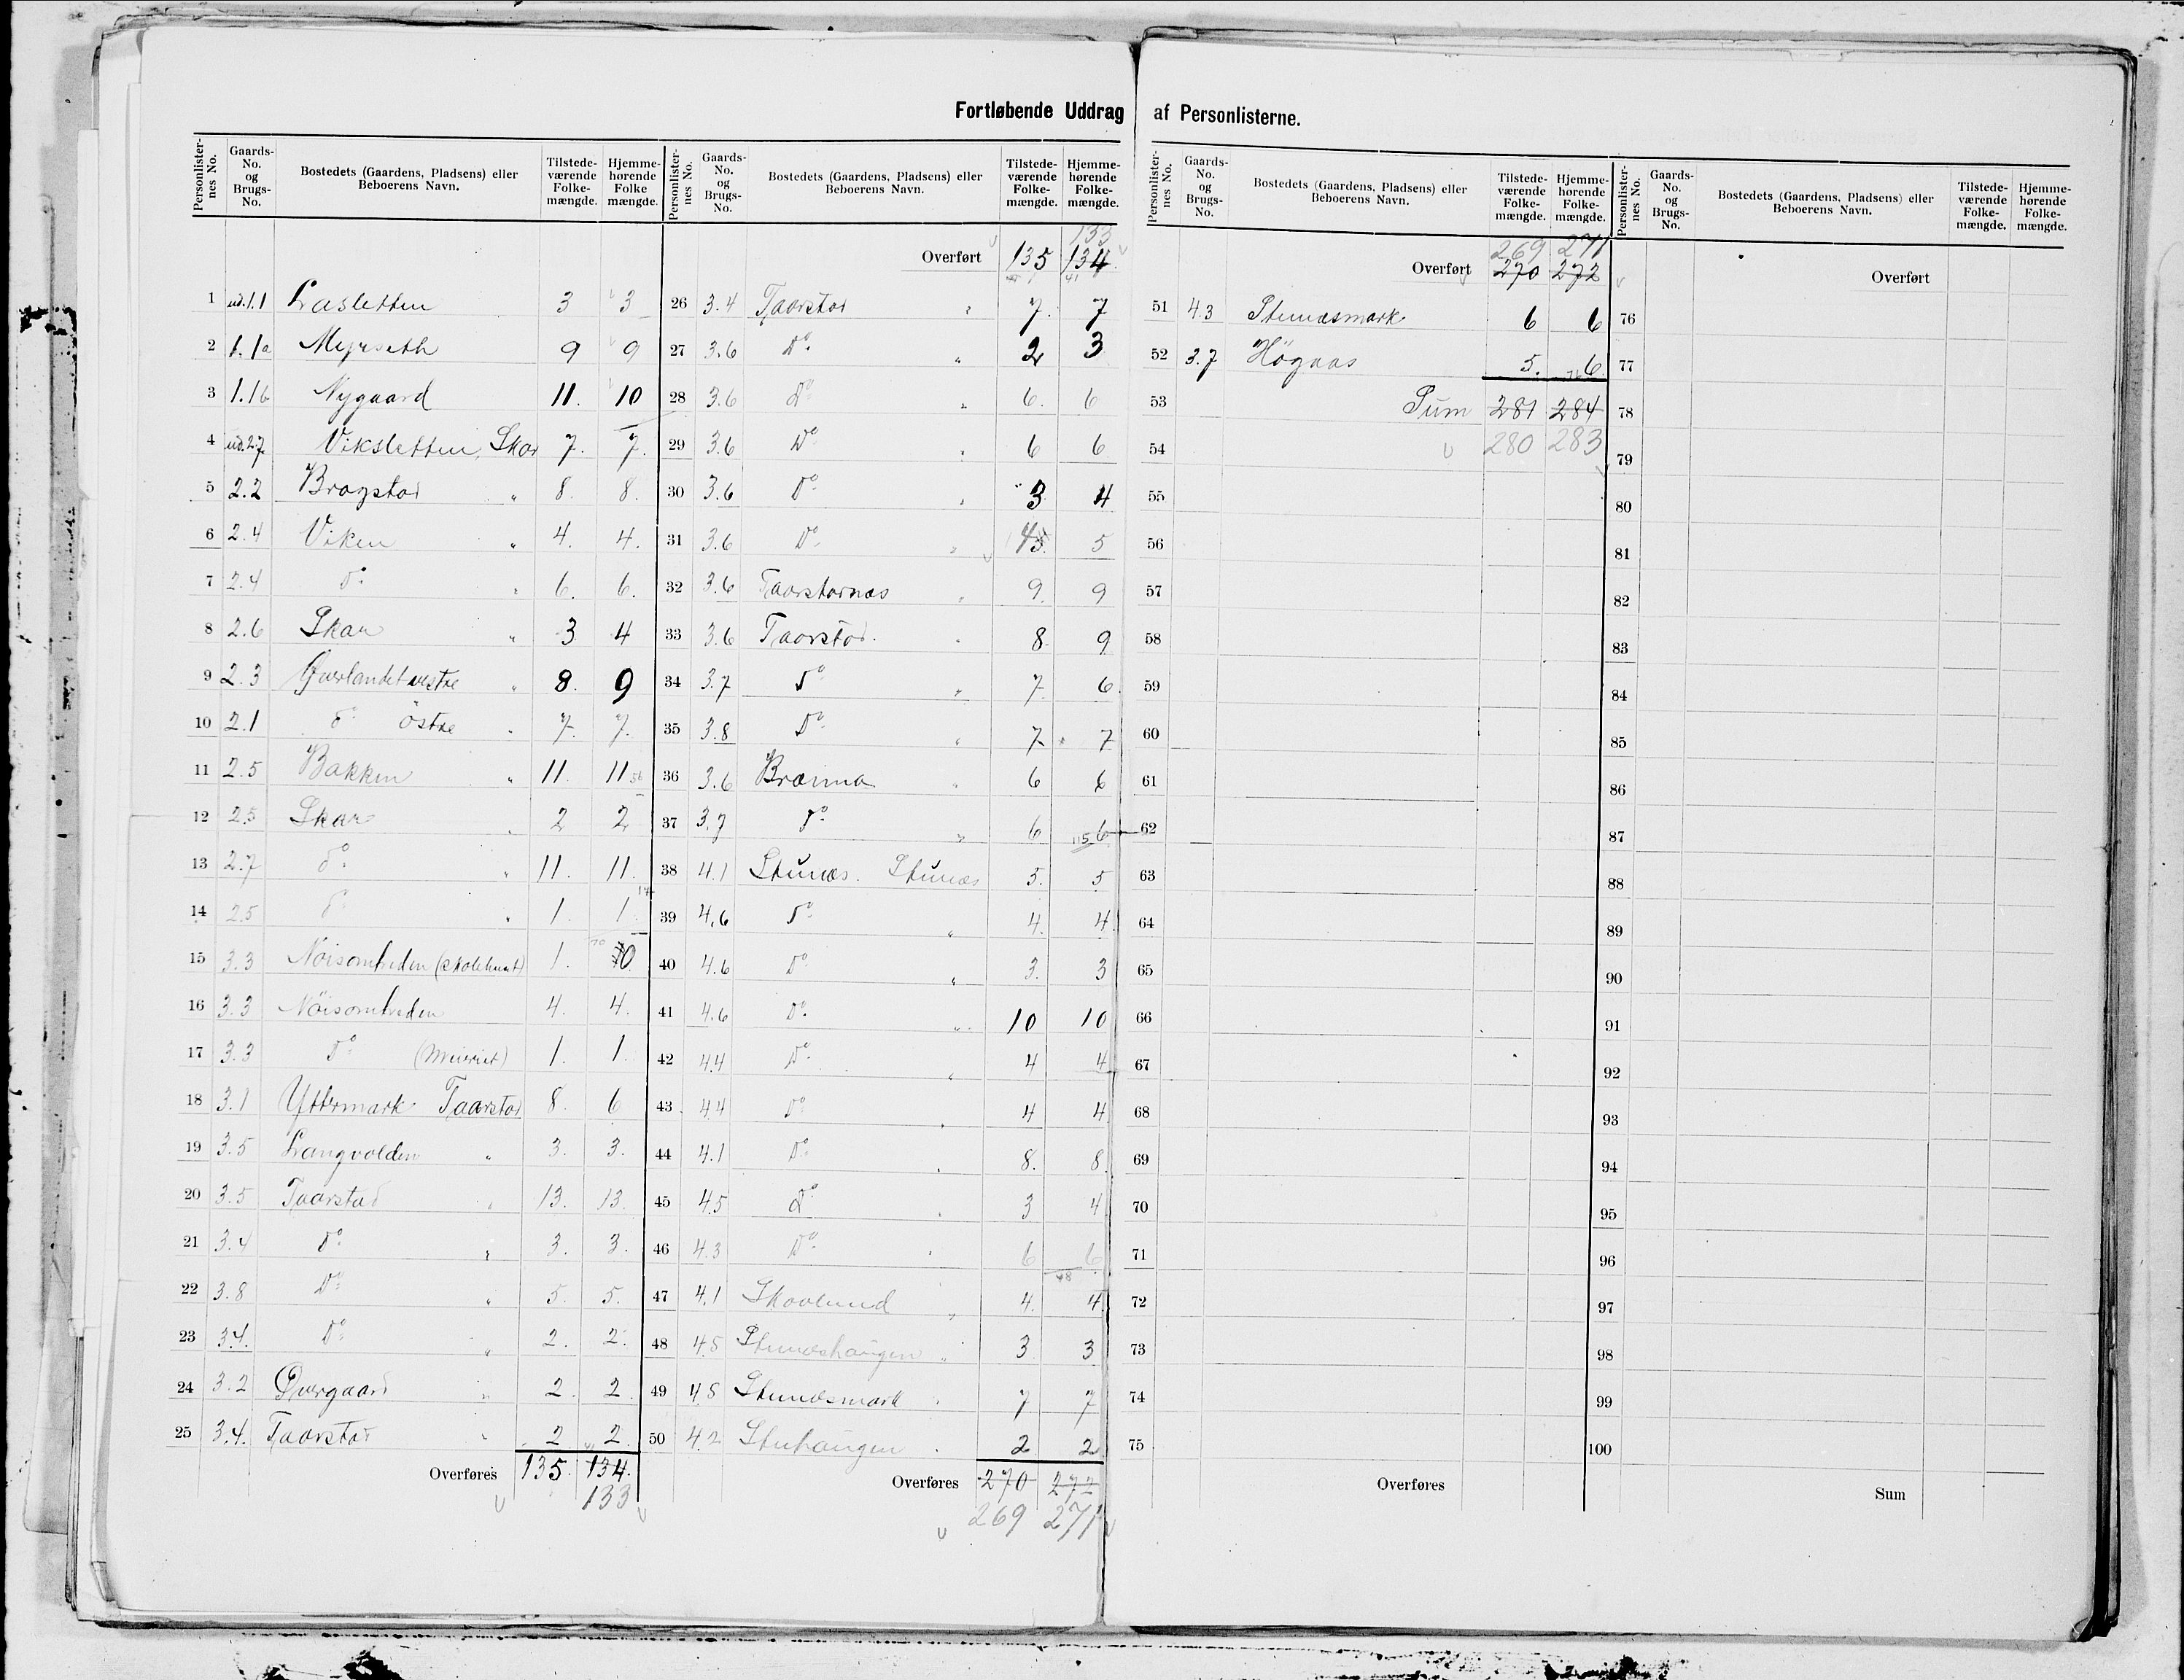 Fortløbende Uddrag af Personlisterne.
Personlister-nes No. Gaards-No. og Brugs-No. Bostedets (Gaardens, Pladsens) eller Beboerens Navn. Tilstede-værende Folke-mængde. Hjemme-hørende Folke mængde.
1 ud.1.1 Lasletten 3 3
2 1.1a Myrseth 9 9
3 1.1b Nygaard 11. 10
4 ud.2.7 Viksletten, Skar 7. 7.
5 2.2 Brogstad " 8. 8.
6 2.4 Viken " 4. 4.
7 2.4 do " 6. 6.
8 2.6 Skar " 3 4
9 2.3 Øverlandet vestre " 8. 9
10 2.1 do östre " 7. 7.
11 2.5 Bakken " 11. 11 56
12 2.5 Skar " 2 2
13 2.7 do " 11. 11.
14 2.5 do " 1. 1. 14
15 3.3 Nöisomheden (skolehuset) 1. 0
16 3.3 Nöisomheden 4. 4.
17 3.3 do (Meieriet) 1. 1.
18 3.1 Yttermark Taarstad 8. 6
19 3.5 Langvolden " 3. 3.
20 3.5 Taarstad " 13. 13.
21 3.4 do " 3. 3.
22 3.8 Do " 5. 5.
23 3.4. Do " 2. 2.
24 3.2 Øvergaard " 2. 2.
25 3.4. Taarstad " 2 2
Overføres 135. 134.
133
Personlister-nes No. Gaards-No. og Brugs-No. Bostedets (Gaardens, Pladsens) eller Beboerens Navn. Tilstede-værende Folke-mængde. Hjemme-hørende Folke-mængde.
133
Overført 135 134.
26 3.4 Taarstad " 7. 7
27 3.6 Do " 2 3
28 3.6 Do " 6. 6
29 3.6 Do " 6 6
30 3.6 Do " 3 4
31 3.6 Do " 4 5. 5
32 3.6 Taarstadnæs " 9. 9
33 3.6 Taarstad. " 8. 9
34 3.7 do " 7. 6.
35 3.8 Do " 7 7
36 3.6 Brænna " 6 6
37 3.7 do " 6 6 115
38 4.1 Stunæs. Stunæs 5. 5
39 4.6 do " 4. 4
40 4.6 Do " 3. 3
41 4.6 Do " 10 10
42 4.4 Do " 4 4
43 4.4 Do " 4 4
44 4.1 Do " 8. 8
45 4.5 Do " 3 4
46 4.3 Do " 6 6
48
47 4.1 Skovlund " 4. 4
48 4.5 Stunæshaugen " 3 3
49 4.5 Stunæsmark " 7 7
50 4.2 Stuhaugen " 2 2
Overføres 270 272
269 271
Personlister-nes No. Gaards-No. og Brugs-No. Bostedets (Gaardens, Pladsens) eller Beboerens Navn. Tilstede-værende Folke-mængde. Hjemme-hørende Folke-mængde.
269 271
Overført 270 272
51 4.3 Stunæsmark 6 6
52 3.7 Högaas 5. 6
53 Sum 281 284
54 280 283
55
56
57
58
59
60
61
62
63
64
65
66
67
68
69
70
71
72
73
74
75
Overføres
Personlister-nes No. Gaards-No. og Brugs-No. Bostedets (Gaardens, Pladsens) eller Beboerens Navn. Tilstede-værende Folke-mængde. Hjemme-hørende Folke-mængde.
Overført
76
77
78
79
80
81
82
83
84
85
86
87
88
89
90
91
92
93
94
95
96
97
98
99
100
Sum